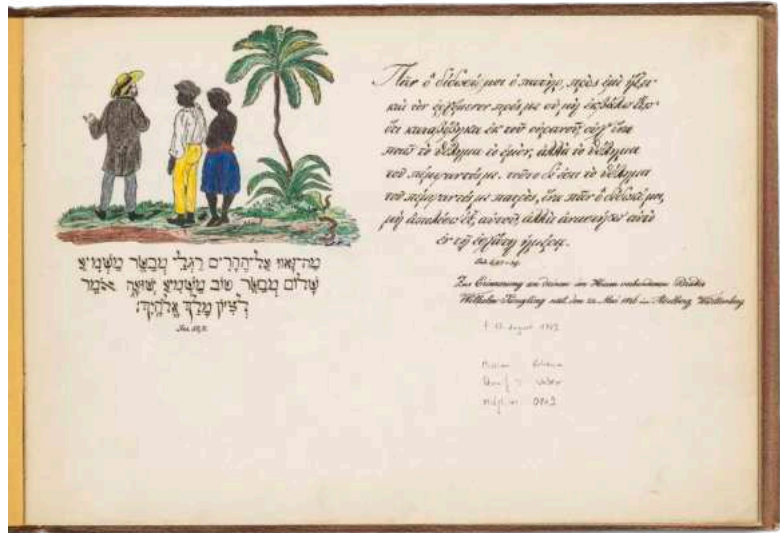 מה־נאוו על־ההרים רגלי מבשר משמיע
שלום מבשר טוב משמיע ישועה אמר
לציון מלך אלהיך׃
Jes. 52,7.
Πᾶν ὃ δίδωσί μοι ὁ πατὴρ, πρὸς ἐμὲ ἥξει·
καὶ τὸν ἐρχόμενον πρός με οὐ μὴ ἐκβάλω ἔξω·
ὅτι καταβέβηκα ἐκ τοῦ οὐρανοῦ, οὐχ' ἵνα
ποιῶ τὸ θέλημα τὸ ἐμὸν, ἀλλὰ τὸ θέλημα
τοῦ πέμψαντός με. τοῦτο δέ ἐστι τὸ θέλημα
τοῦ πέμψαντός με πατρὸς, ἵνα πᾶν ὃ δέδωκέ μοι,
μὴ ἀπολέσω ἐξ αὐτοῦ, ἀλλὰ ἀναστήσω αὐτὸ
ἐν τῇ ἐσχάτῃ ἡμέρᾳ.
Zur Erinnerung an deinen im Herrn verbundenen Bruder
Wilhelm den 22. Mai in Württemberg
August
Mission